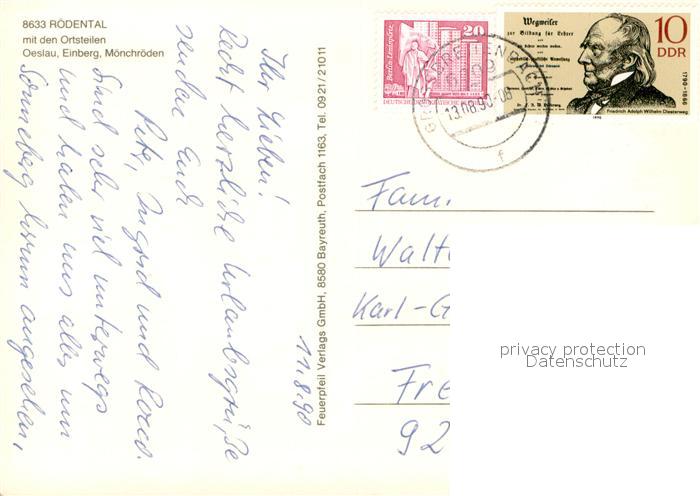 8633 RÖDENTAL
mit den Ortsteilen
Oeslau, Einberg, Mönchröden
11.8.90
Ihr Lieben!
Recht herzliche Urlaubsgrüße
senden Euch
Ingrid und
Sind sehr viel unterwegs
und haben uns alles um
Sonneberg herum angesehen,
Feuerpfeil Verlags GmbH, 8580 Bayreuth, Postfach 1163, Tel. 0921/21011
Berlin-Leninplatz
20
DEUTSCHE DEMOKRATISCHE
13.08.90-08
f
Wegweiser
zur Bildung für Lehrer
10
DDR
1790-1866
Friedrich Adolph Wilhelm Diesterweg
1990
Fam.
Walt
Karl-G
Fre
92
privacy protection
Datenschutz